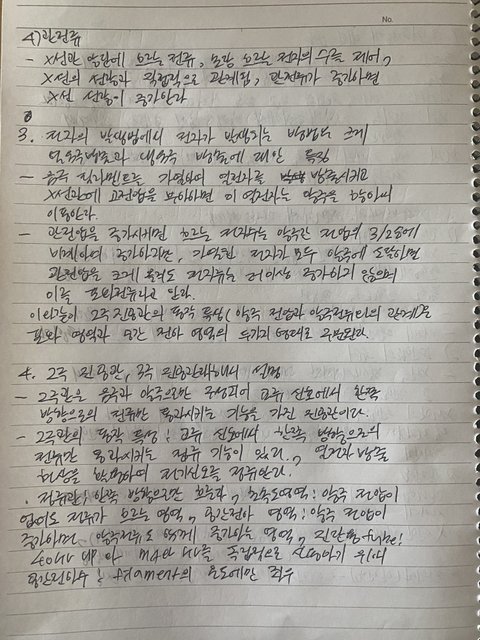 No.
4) 관전류
- X선관 양단에 흐르는 전류, 보강 흐르는 전자의 수를 제어,
X선의 선량과 직접적으로 관계됨, 관전류가 증가하면
X선 선량이 증가한다
3. 전자의 발생법에서 전자가 발생되는 방법을 크게
열음극방출과 냉음극 방출에 대한 특징
- 음극 필라멘트는 가열하여 열전자를 방출시키고
X선관에 고전압을 부하하면 이 열전자는 양극을 향하여
이동한다.
- 관전압을 증가시키면 흐르는 전자수는 양극간 전압의 3/2승에
비례하여 증가하지만, 가열된 전자가 모두 양극에 도달하면
관전압을 크게 올려도 전자류는 더이상 증가하지 않으며
이를 포화전류라고 한다.
이러들이 2극 진공관의 동작 특성(양극 전압과 양극전류와의 관계)은
포화 영역과 공간 전하 영역의 두가지 형태로 구분된다.
4. 2극 진공관, 3극 진공관에 대해서 설명
- 2극관은 음극과 양극으로만 구성되어 교류 신호에서 한쪽
방향으로의 전류만 통과시키는 기능을 가진 진공관이다.
- 2극관의 동작 특성: 교류 신호에서 한쪽 방향으로의
전류만 통과시키는 정류 기능이 있다, 열전자 방출
현상을 이용하여 전기신호를 정류한다.
· 정류관: 한쪽 방향으로만 흐름, 초속도영역: 양극 전압이
없어도 전류가 흐르는 영역, 공간전하 영역: 양극 전압이
증가하면 양극전류도 함께 증가하는 영역,
mA와 독립적으로 위해서
공간전하 : filament의 온도에만 좌우